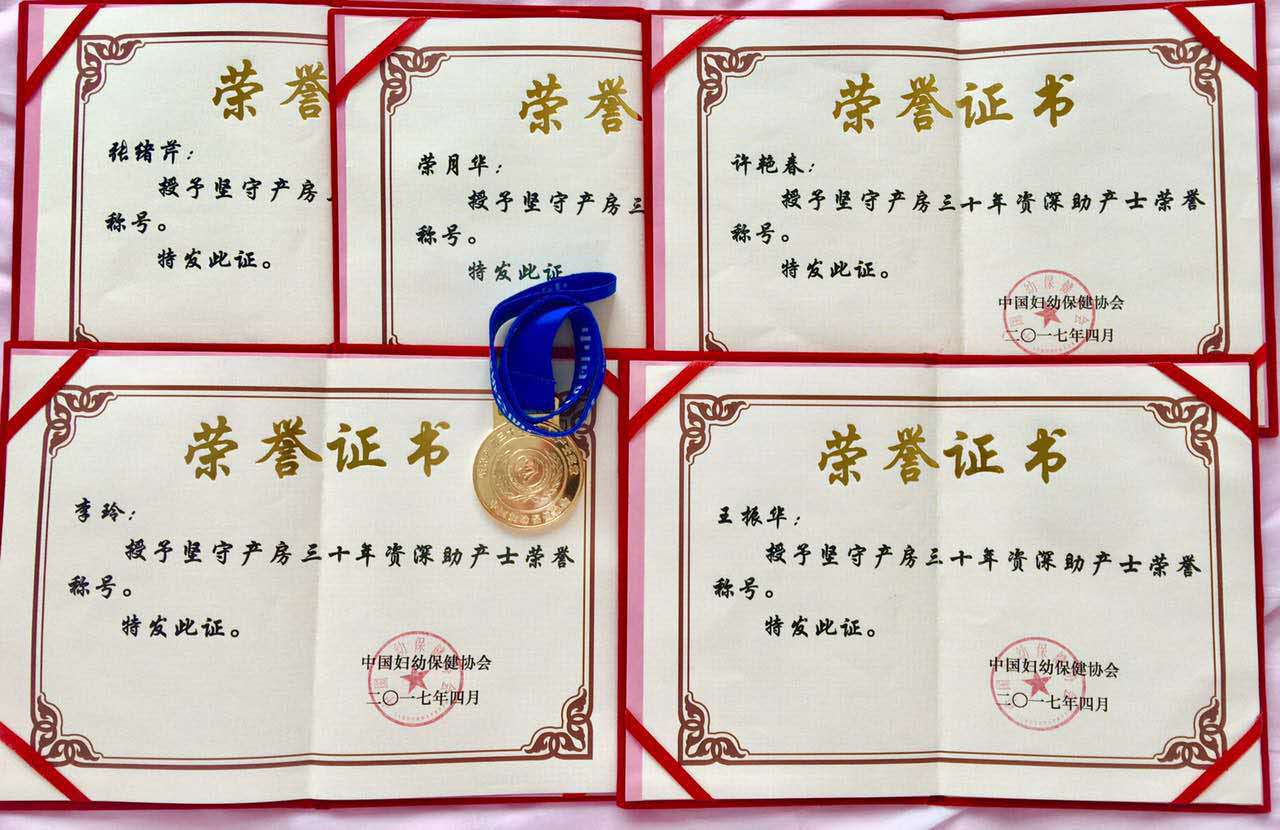 荣誉
张绪芹：
授予坚守产房
称号。
特发此证。
荣誉
荣月华：
授予坚守产房三
称号。
特发此证
荣誉证书
许艳春：
授予坚守产房三十年资深助产士荣誉
称号。
特发此证。
中国妇幼保健协会
二〇一七年四月
荣誉证书
李玲：
授予坚守产房三十年资深助产士荣誉
称号。
特发此证。
中国妇幼保健协会
二〇一七年四月
荣誉证书
王振华：
授予坚守产房三十年资深助产士荣誉
称号。
特发此证。
中国妇幼保健协会
二〇一七年四月